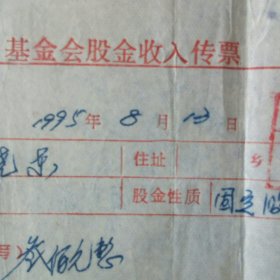 基金会股金收入传票
1995年8月13日
住址 乡
股金性质 固定股
号) 贰佰元整